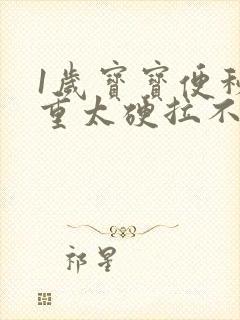 1歲寶寶便秘
重太硬拉不
祁星